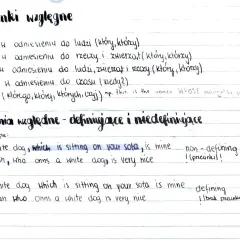 nki względne
w odniesieniu do ludzi (który, którzy)
w odniesieniu do rzeczy i zwierząt (który, którzy)
w odniesieniu do ludzi, zwierząt i rzeczy (który, którzy)
w odniesieniu do czasu (kiedy)
(którego, której, których, czyj) this is the same WHOSE
nia względne - definiujące i niedefiniujące
te dog, which is sitting on your sofa, is mine
n, who owns a white dog, is very nice
non-defining
(przecinki!)
ite dog which is sitting on your sofa is mine
an who owns a white dog is very nice
defining
(brak przecink